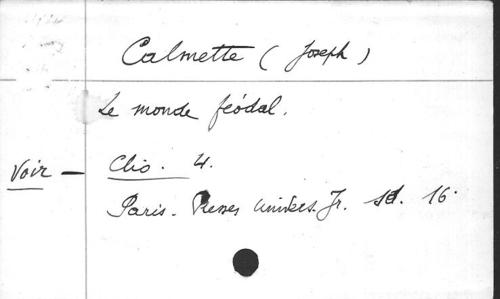 Calmette (Joseph)
Le monde féodal.
Voir — Clio. 4.
Paris. Presses univers. Fr. sd. 16.